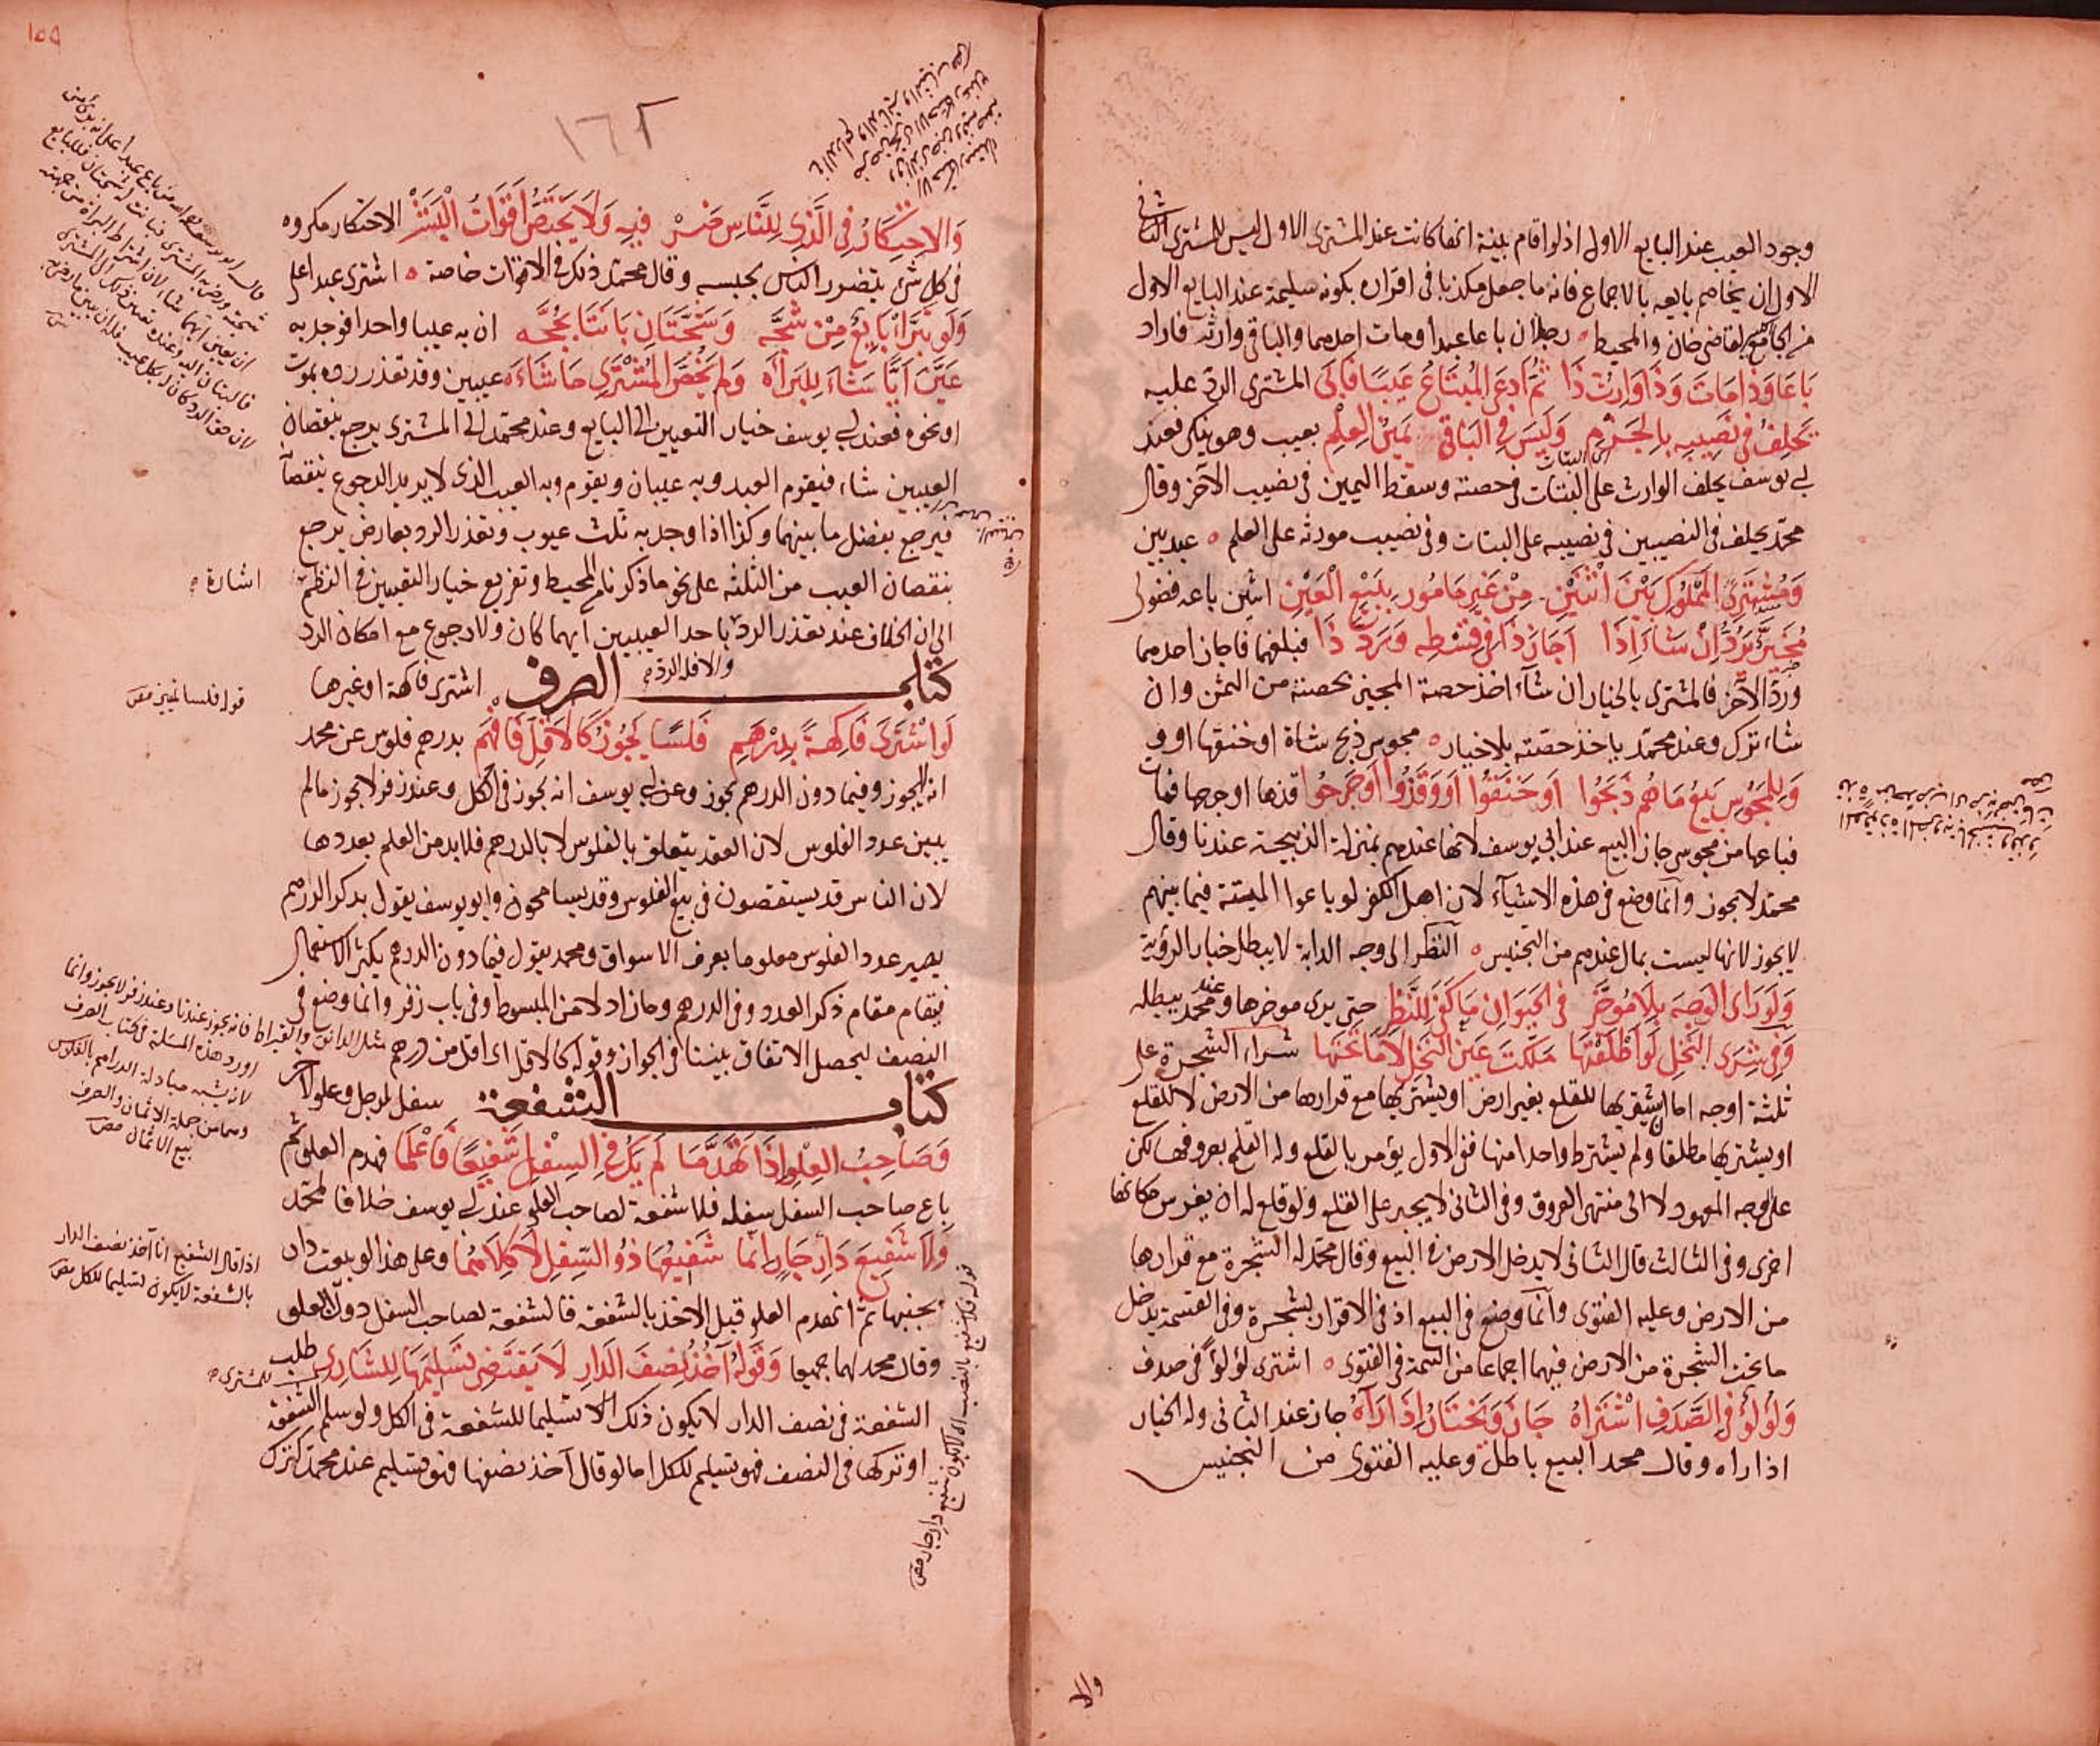 وجود العيب عند البايع الاول اذ لو اقام بينة انها كانت عند المشترى الاول ليس للمشترى الثانى
الاول ان يخاصم بايعه بالاجماع فانه ما جعل مكذبا فى اقراره بكونه سليمة عند البايع الاول
من الجامع لقاضى خان والمحيط رجلان باعا عبدا ومات احدهما والباقى وارثه فاراد
باعا وذا مات وذا وارث ذا ثم ادعى المبتاع عيبا فابى المشترى الرد عليه
يحلف فى نصيبه بالجزم وليس فى الباقى يمين العلم بعيب وهو ينكر فعند
ابى يوسف يحلف الوارث على البتات فى حصته وسقط اليمين فى نصيب الآخر وقال
محمد يحلف فى النصيبين فى نصيبه على البتات وفى نصيب مورثه على العلم عبد بين
ومشترى المملوك بين اثنين من غير مامور ببيع العين اثنين باعه فضولى
مخير يرد ان شاء اذا اجاز ذا فى قسطه ورد ذا فبلغهما فاجاز احدهما
ورد الآخر فالمشترى بالخيار ان شاء اخذ حصة المجيز بحصته من الثمن وان
شاء ترك وعند محمد ياخذ حصته بلا خيار مجوسى ذبح شاة او خنقها او و
وللمجوس بيع ما هم ذبحوا او خنقوا او وقذوا او جرحوا قذها او جرحها فمات
فباعها من مجوسى جاز البيع عند ابى يوسف لانها عندهم بمنزلة الذبيحة عندنا وقال
محمد لا يجوز وانما وضع فى هذه الاشياء لان اهل الكفر لو باعوا الميتة فيما بينهم
لا يجوز لانها ليست بمال عندهم من التجنيس النظر الى وجه الدابة لا يبطل خيار الرؤية
ولو راى الوجه بلا مؤخر فى الحيوان ما كفى للنظر حتى يرى موخرها وعند محمد يبطله
وفى شرى النخل لو اطلقتها ملكت عين النخل لا ما تحتها شراء الشجرة على
ثلثة اوجه اما ان يشتريها للقلع بغير ارض او يشتريها مع قرارها من الارض لا للقلع
او يشتريها مطلقا ولم يشترط واحدا منها ففى الاول يؤمر بالقلع وله القلع بعروقها لكن
على وجه المعهود لا الى منتهى العروق وفى الثانى لا يجبر على القلع ولو قلع له ان يغرس مكانها
اخرى وفى الثالث قال الثانى لا يدخل الارض فى البيع وقال محمد له الشجرة مع قرارها
من الارض وعليه الفتوى وانما وضع فى البيع اذ فى الاقرار بشجرة وفى القسمة يدخل
ما تحت الشجرة من الارض فيهما اجماعا من التتمة فى الفتوى اشترى لؤلؤا فى صدف
ولؤلؤ فى الصدف اشتراه جاز ويختار اذا رآه جاز عند الثانى وله الخيار
اذا راه وقال محمد البيع باطل وعليه الفتوى من التجنيس
والا
١٥٥
١٦٢
والاحتكار فى الذى للناس ضر فيه ولا يختص اقوات البشر الاحتكار مكروه
فى كل شئ يتضرر الناس بحبسه وقال محمد ذلك فى الاقوات خاصة اشترى عبدا على
ولو تبرا بايع من شجه وشجتان بانتا بحجه ان به عيبا واحدا فوجد به
عين ايا شاء للبراه ولم يخص المشترى ما شاءه عيبين وقد تعذر رده بموت
او نحوه فعند ابى يوسف خيار التعيين الى البايع وعند محمد الى المشترى يرجع بنقصان
العيبين شاء فيقوم العبد وبه عيبان ويقوم وبه العيب الذى لا يريد الرجوع بنقصانه
فيرجع بفضل ما بينهما وكذا اذا وجد به ثلث عيوب وتعذر الرد بعارض يرجع
بنقصان العيب من الثلثة على نحو ما ذكرنا من المحيط وتفريع خيار التعيين فى النظم اشارة
الى ان الخلاف عند تعذر الرد باحد العيبين ايهما كان ولا رجوع مع امكان الرد
والا فله الرد
كتاب الصرف اشترى فاكهة او غيرها
لو اشترى فاكهة بدرهم فلسا يجوز كالاقل فافهم بدرهم فلوس عن محمد
انه لا يجوز وفيما دون الدرهم يجوز وعن ابى يوسف انه يجوز فى الكل وعند زفر لا يجوز ما لم
يبين عدد الفلوس لان العقد يتعلق بالفلوس لا بالدرهم فلا بد من العلم بعددها
لان الناس قد يستقصون فى بيع الفلوس وقد يسامحون وابو يوسف يقول بذكر الدرهم
يصير عدد الفلوس معلوما بعرف الاسواق ومحمد يقول فيما دون الدرهم يكثر الاستعمال
فيقام مقام ذكر العدد وفى الدرهم وما زاد لا من المبسوط وفى باب زفر وانما وضع فى
النصف ليحصل الاتفاق بيننا فى الجواز وقوله كالاقل اى اقل من درهم
كتاب الشفعة سفل لرجل وعلو لآخر
وصاحب العلو اذا تهدما لم يك فى السفل شفيعا فاعلما فهدم العلو ثم
باع صاحب السفل سفله فلا شفعة لصاحب العلو عند ابى يوسف خلافا لمحمد
ولا شفيع دار جار انما شفيعها ذو السفل لا كلاهما وعلى هذا لو بيعت دار
بجنبها ثم انهدم العلو قبل الاخذ بالشفعة فالشفعة لصاحب السفل دون العلو
وقال محمد لهما جميعا وقوله آخذ نصف الدار لا يقتضى تسليمها للشارى طلب
للمشترى
الشفعة فى نصف الدار لا يكون ذلك تسليما للشفعة فى الكل ولو سلم الشفعة
او تركها فى النصف فهو تسليم للكل اما لو قال آخذ نصفها فهو تسليم عند محمد كترك
اذا قال الشفيع انا آخذ نصف الدار
بالشفعة لا يكون تسليما للكل
مثل الدانق والقيراط فانه يجوز عندنا وعند زفر لا يجوز وانما
اورد هذه المسئلة فى كتاب الصرف
لانه يشبه مبادلة الدراهم بالفلوس
وهما من جملة الاثمان والصرف
بيع الاثمان